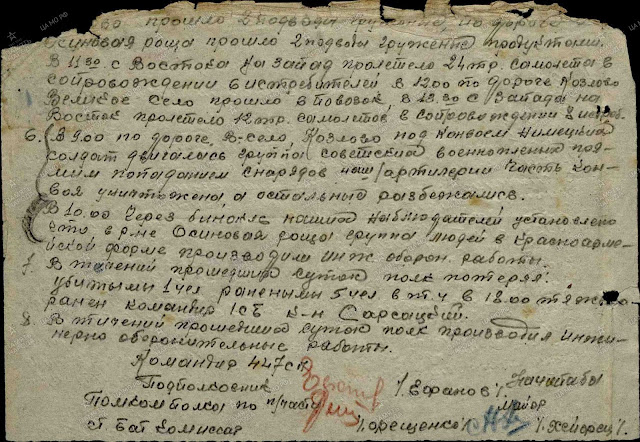 прошло 2 подводы груженые, по дороге
Осиновая роща прошло 2 подводы груженые продуктами.
В 11.30 с Востока на запад пролетело 24 тр. самолета в
сопровождении 6 истребителей в 12.00 по дороге Козлово
Великое Село прошло повозок, в 13.30 с Запада на
Восток пролетело 12 тр. самолетов, в сопровождении 8 истреб.
6. В 9.00 по дороге В-село, Козлово под конвоем Немецких
солдат двигалась группа советских военнопленных пря-
мым попаданием снарядов наш/артилерии часть кон-
воя уничтожена, а остальные разбежались.
В 10.00 через бинокль нашими наблюдателями установлено
что в р-не Осиновая роща группа людей в Красноарме-
йской форме производили инж. оборон. работы.
7. В течений прошедших суток полк потерял:
убитыми 1 чел ранеными 5 чел в т.ч в 18.00 тяжело
ранен командир 1сб к-н Сарсацкий.
8. В течений прошедших суток полк производил инжи-
нерно оборонительные работы.
Командир 447сп
Подполковник /Ефанов/ Начштаба
Помком полка по п/части майор
ст бат комиссар /орещенко/ /Хейфец/